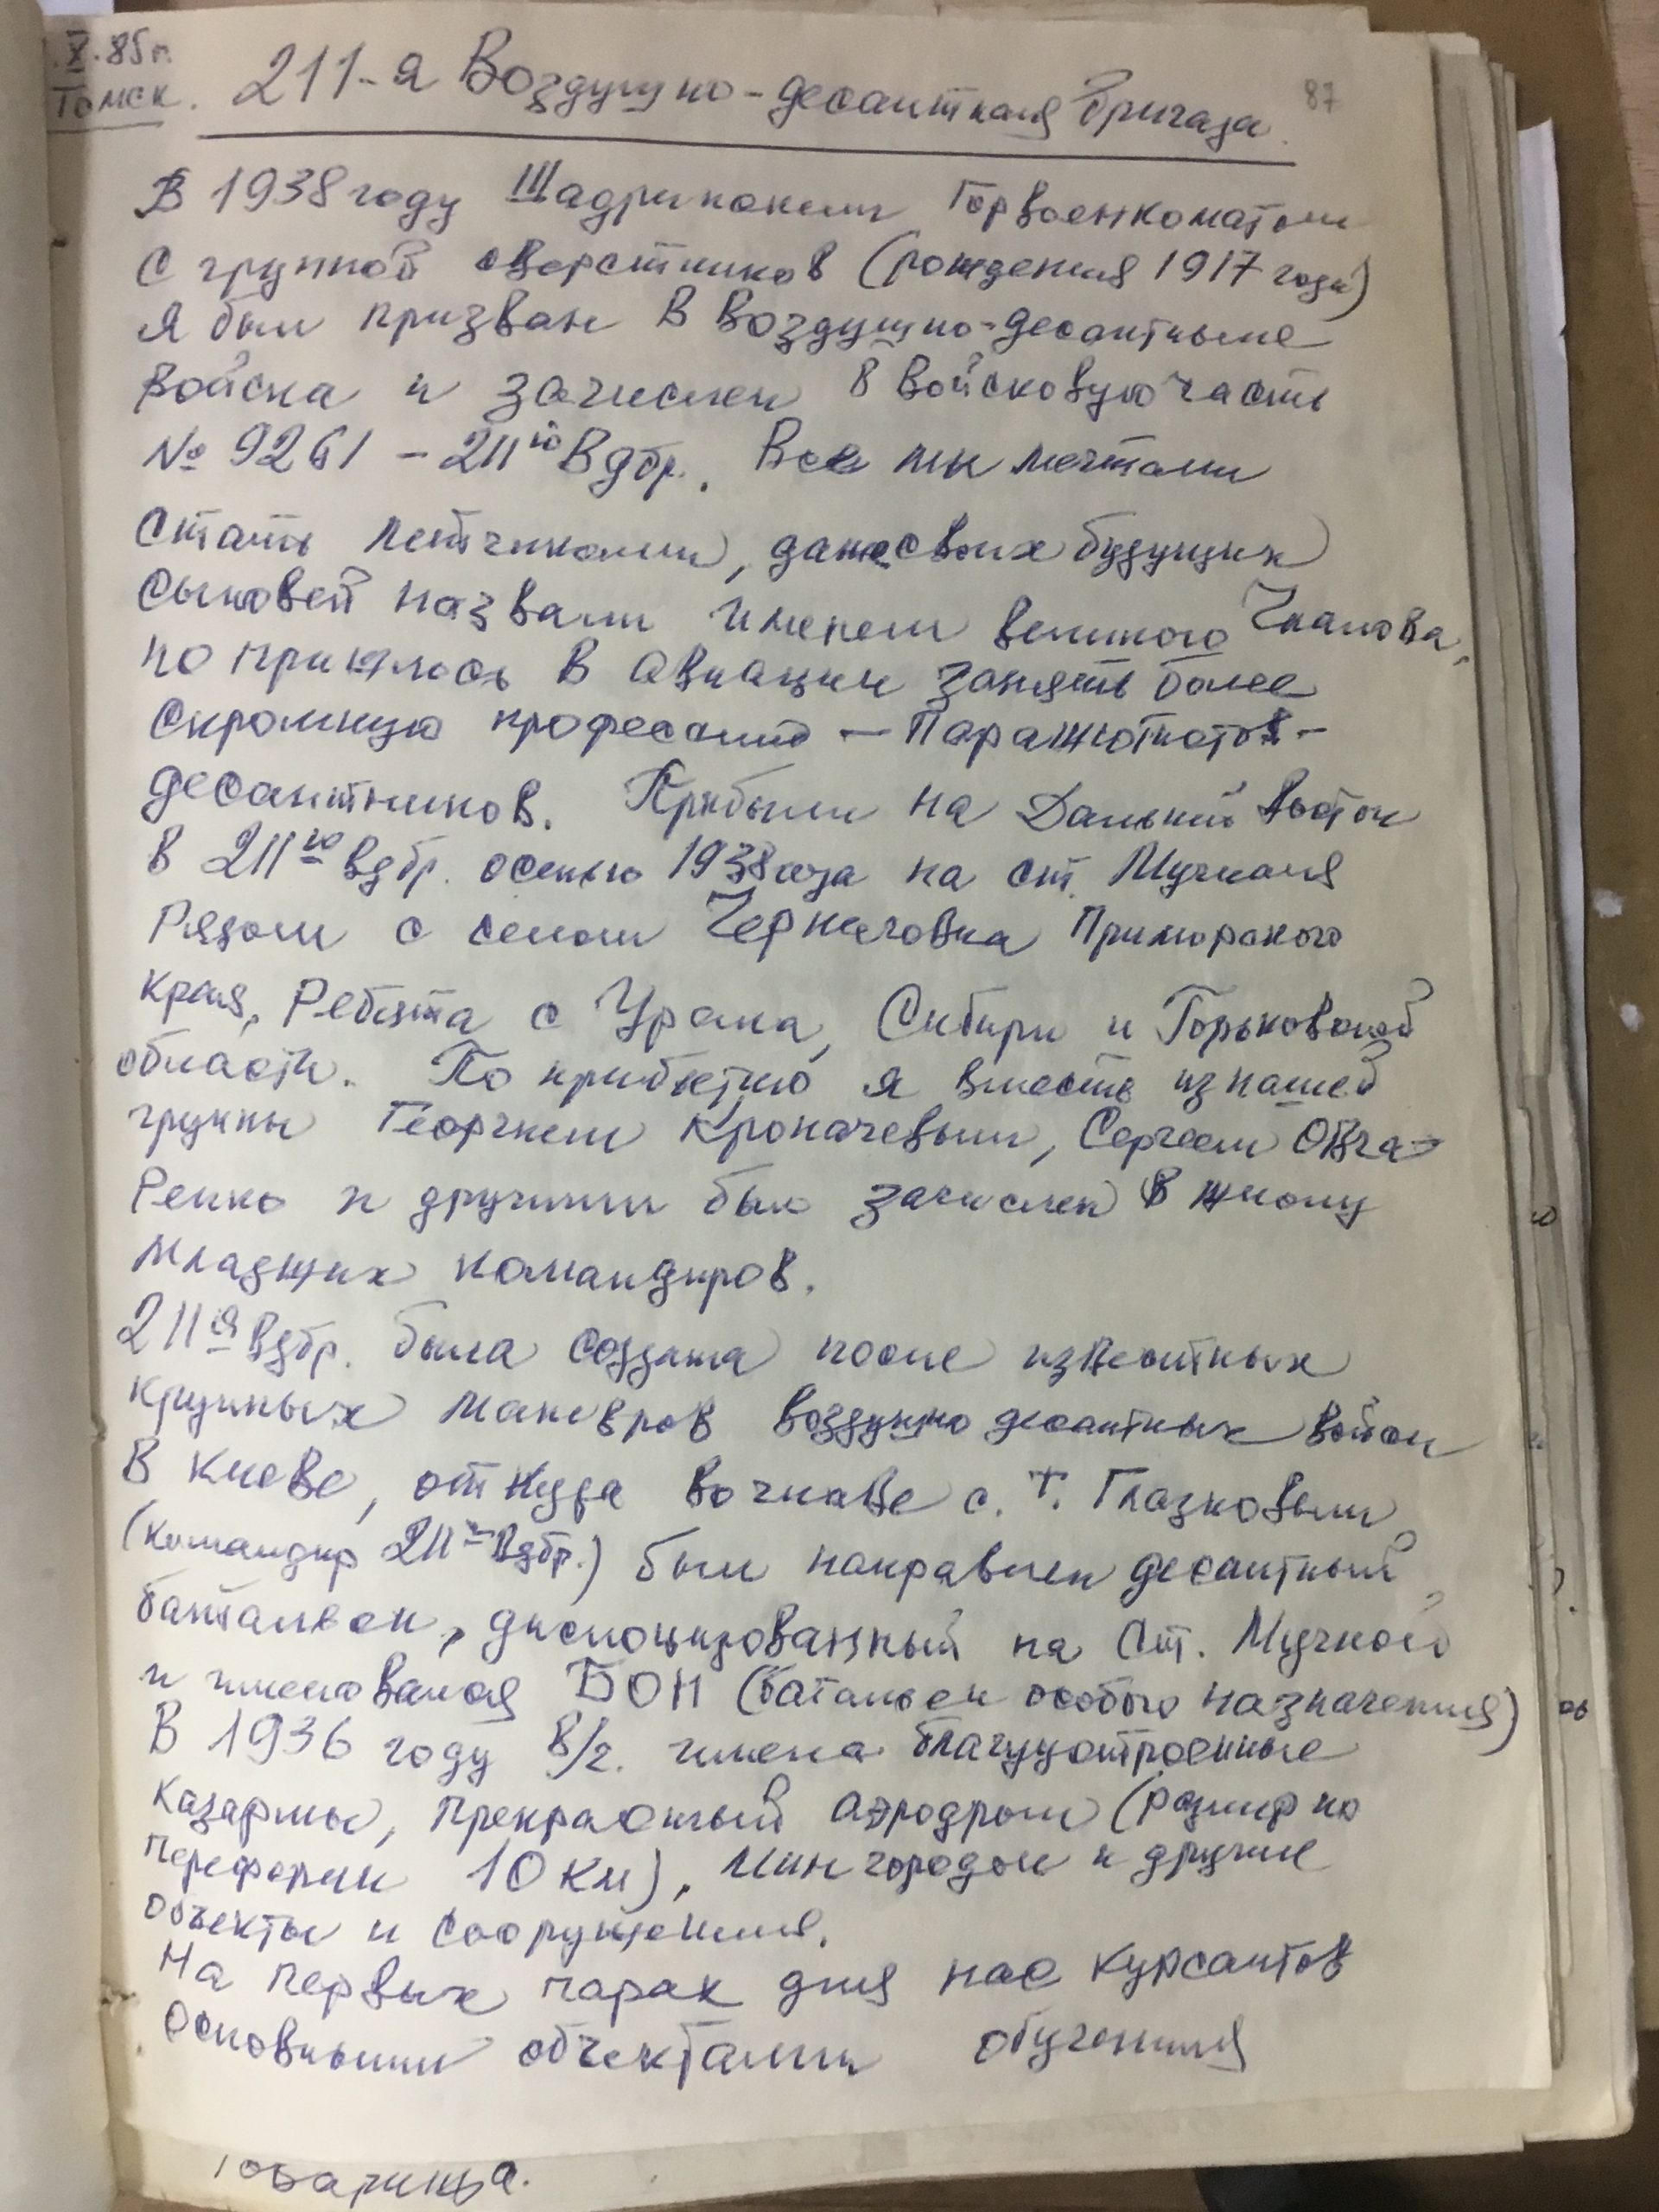 X.85г.
Томск.
87
211-я Воздушно-десантная бригада.
В 1938 году Шадринским Горвоенкоматом
с группой сверстников (рождения 1917 года)
я был призван в воздушно-десантные
войска и зачислен в войсковую часть
№ 9261 – 211ю Вдбр. Все мы мечтали
стать летчиками, даже своих будущих
сыновей назвали именем великого Чкалова,
но пришлось в авиации занять более
скромную професcию – Парашютистов-
десантников. Прибыли на Дальний Восток
в 211ю вдбр. осенью 1938 года на ст. Мучная
рядом с селом Черниговка Приморского
края, Ребята с Урала, Сибири и Горьковской
области. По прибытию я вместе из нашей
группы Георгием Кропачевым, Сергеем Овча-
ренко и другими был зачислен в школу
младших командиров.
211я Вдбр. была создана после известных
крупных маневров воздушно десантных войск
в Киеве, откуда во главе с. т. Глазковым
(командир 211й Вдбр.) был направлен десантный
батальон, дислоцированный на Ст. Мучной
и именовался БОН (батальон особого назначения)
В 1936 году в/г. имела благоустроенные
казармы, прекрасный аэродром (размер по
переферии 10 км), городок и другие
объекты и сооружения.
На первых парах для нас курсантов
основными объектами обучения
товарища.